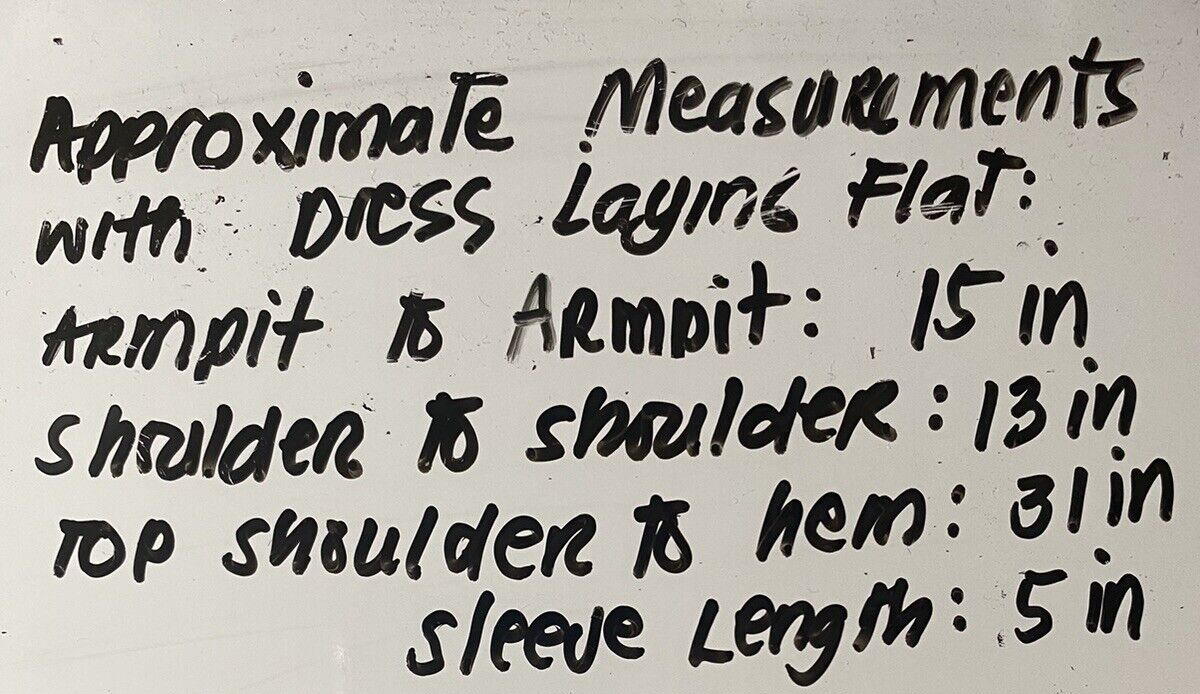 Approximate Measurements
with Dress Laying Flat:
Armpit to Armpit: 15 in
shoulder to shoulder: 13 in
Top shoulder to hem: 31 in
sleeve Length: 5 in